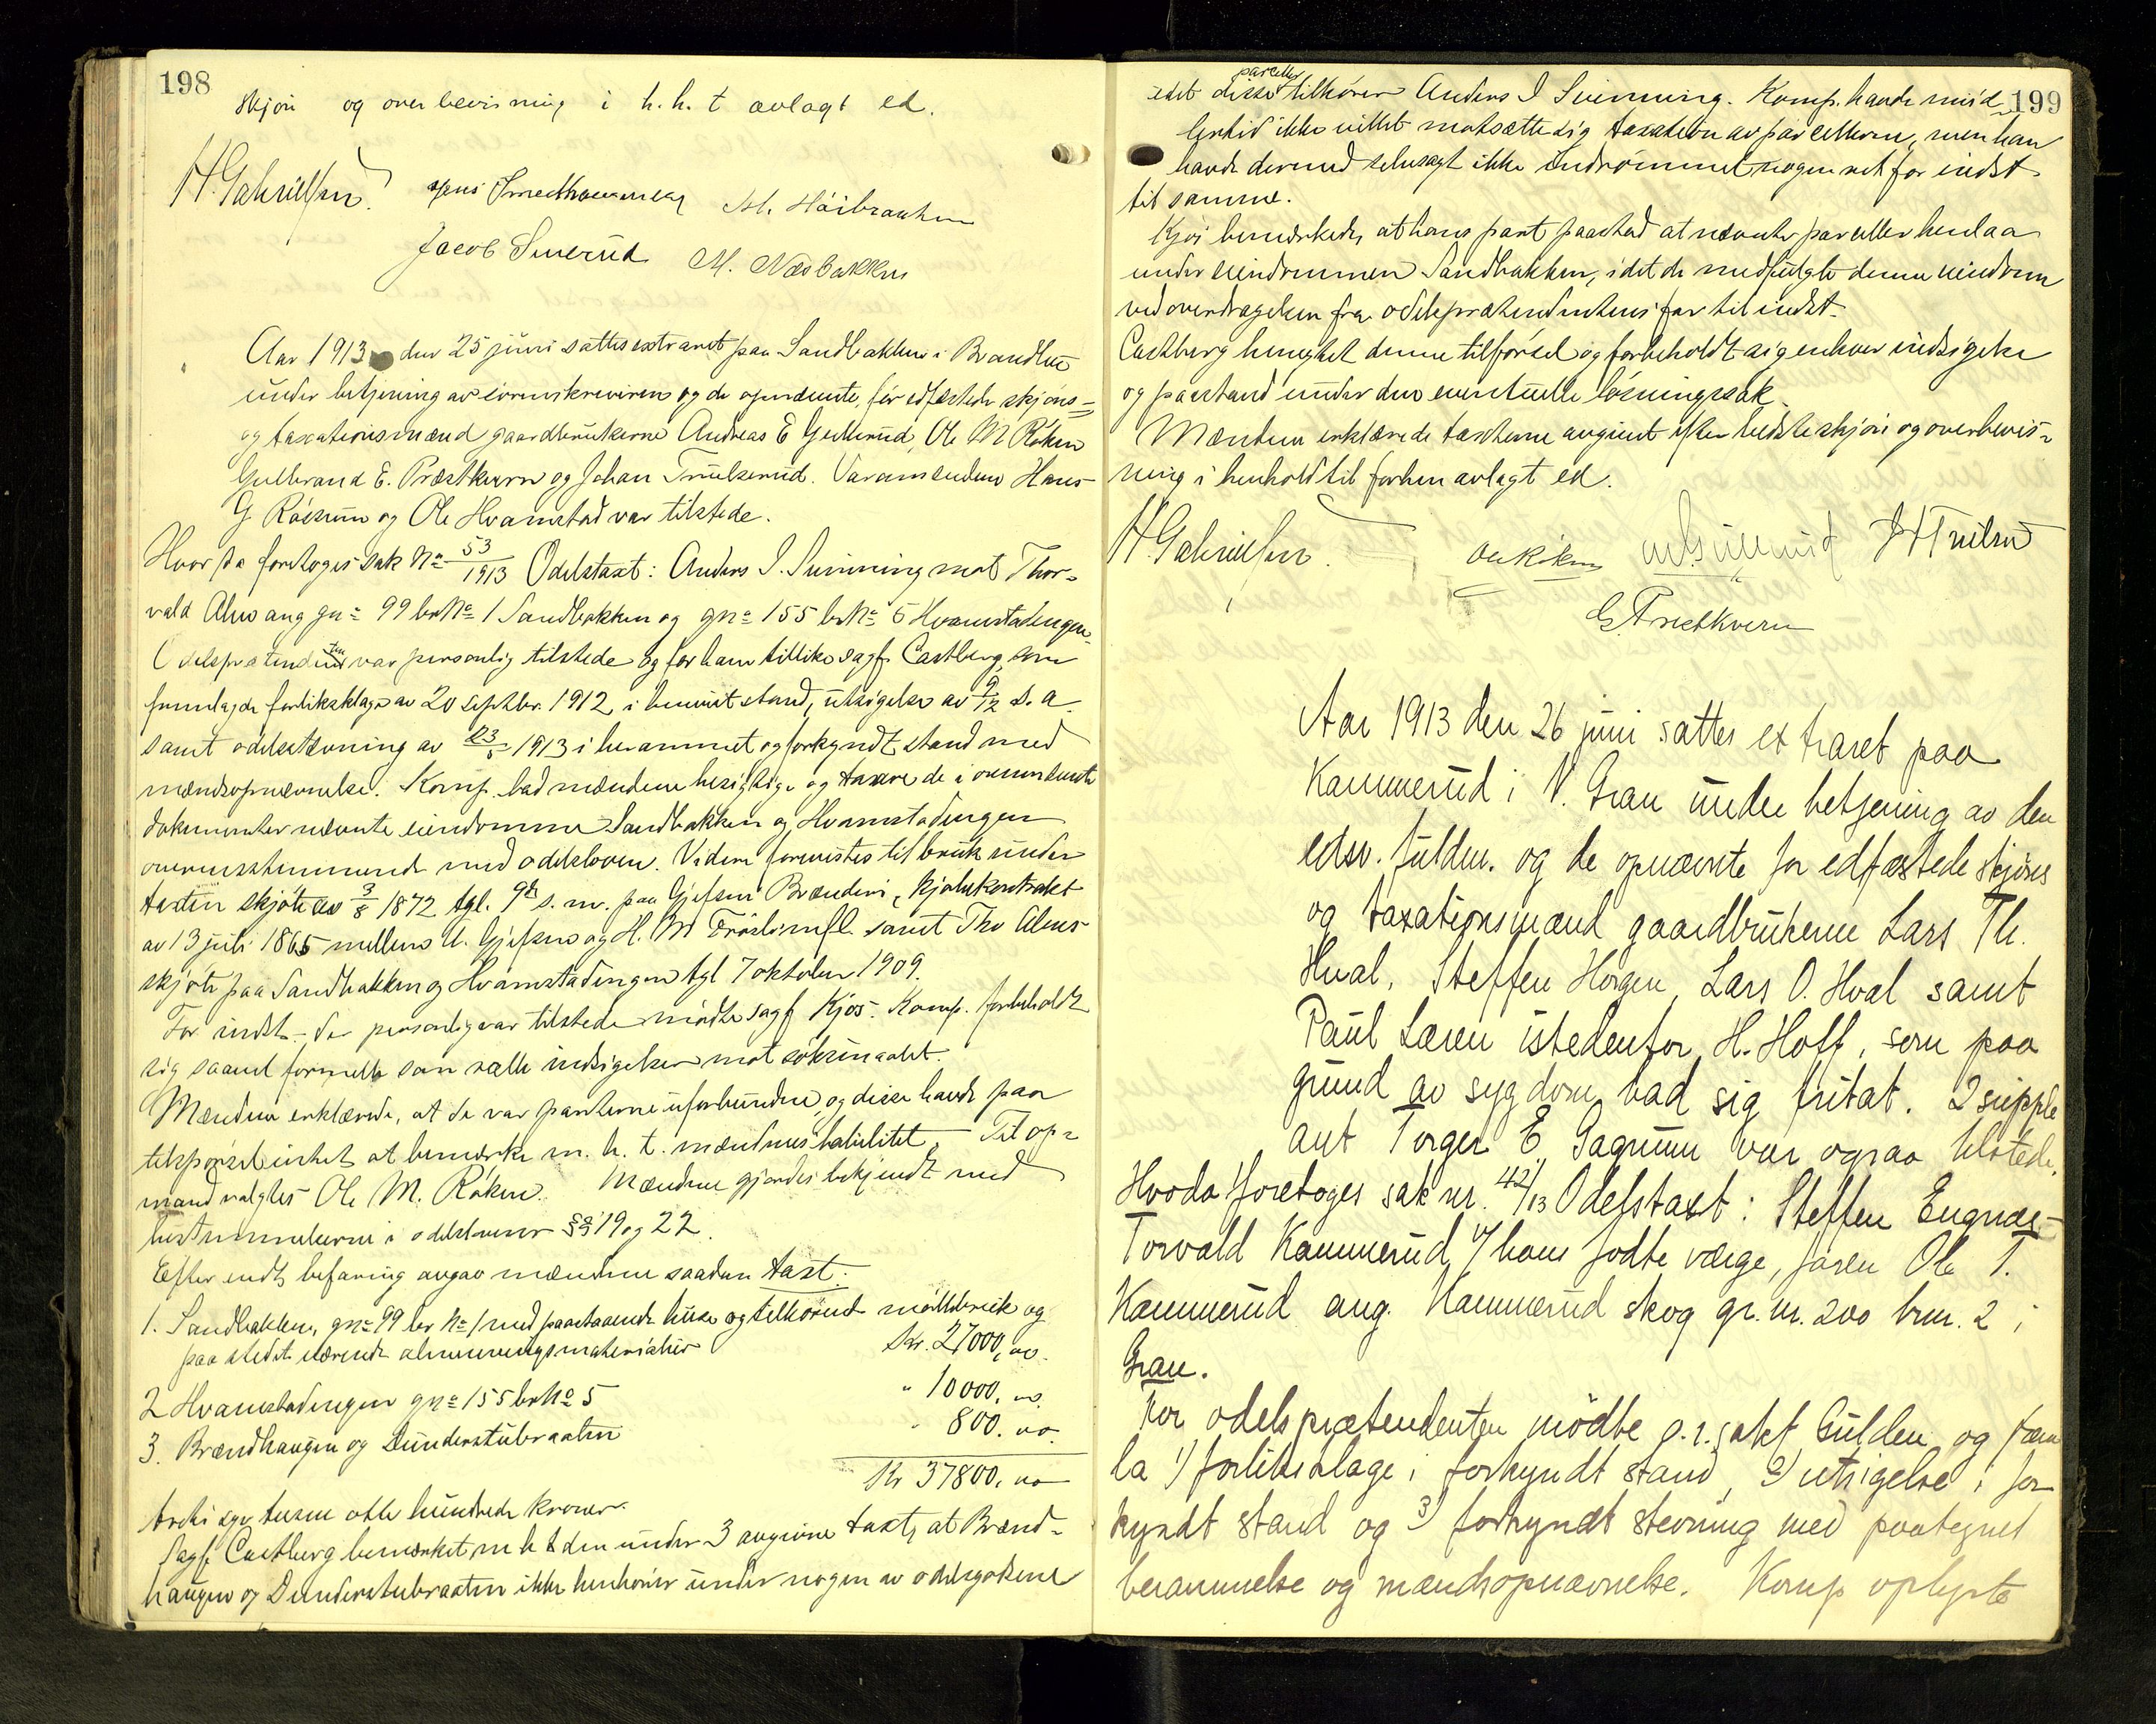 198
skjøn og overbevisning i h. h. t avlagt ed.
H. Gabrielsen.
Jacob Smerud M. Næsbakken
Aar 1913 den 25 juni sattes extraret paa Sandbakken i Brandbu
under betjening av sorenskriveren og de opnævnte, før edfæstede skjøns-
og taxationsmænd gaardbrukerne Andreas E Gullerud, Ole M Røken
Gulbrand E. Præstkvern og Johan Trulserud. Varamændene Hans
G Røisum og Ole Hvamstad var tilstede.
Hvorda foretoges sak No 53/1913 Odelstaxt: Anders I. Svinning mot Thor-
vald Alms ang gn= 99 br No 1 Sandbakken og gn= 155 br No 5 Hvamstadengen
Odelsprætendenten var personlig tilstede og for ham tillike sagf. Castberg, som
fremlagde forliksklage av 20 septbr. 1912, i behørig stand, utsigelse av 9/12 s. a.
samt odelsstevning av 23/5 1913 i berammet og forkyndt stand med
mændsopnævnelse. Komp. bad mændene besigtige og taxere de i ovennævnte
dokumenter nævnte eiendomme Sandbakken og Hvamstadengen
overensstemmende med odelsloven. Videre forevistes til bruk under
taxten skjøte av 3/8 1872 tgl. 9de s. m. paa Gjefsen Brænderi, kjøbekontrakt
av 13 juli 1865 mellem U. Gjefsen og H. M Frøslimfl. samt Tho Alms
skjøte paa Sandbakken og Hvamstadengen tgl 7 oktober 1909.
For indst. der personlig var tilstede mødte sagf Kjos. Komp. forbeholdt
sig saavel formelle som reelle indsigelser mot søksmaalet.
Mændene erklærede, at de var parterne uforbundne, og disse havde paa
tilspørsel intet at bemerke m. h. t. mændenes habilitet. Til op-
mand valgtes Ole M. Røken. Mændene gjordes bekjendt med
bestemmelserne i odelsloven §§ 19 og 22.
Efter endt befaring avgav mændene saadan taxt:
1. Sandbakken, gn= 99 br No 1 med paastaaende huse og tilhørende møllebruk og
paa stedet værende Kr. 27000,00.
2 Hvamstadengen gn= 155 br No 5 " 10000. 00.
3. Brændhaugen og Dunderstubraaten " 800. 00.
Kr 37800. 00
treti syv tusen otte hundrede kroner.
Sagf. Castberg bemerket m h t den under 3 avgivne taxt, at Brænd-
haugen og Dunderstubraaten ikke henhører under nogen av odelsgodsene
199
idet disse parceller tilhører Anders I Svinning. Komp. havde imid-
lertid ikke villet motsætte sig taxation av parcellerne, men han
havde dermed selvsagt ikke indrømmet nogen ret for indst
til samme.
Kjos bemerkede, at hans part paastod at nævnte parceller henlaa
under eiendommen Sandbakken, idet de medfulgte denne eiendom
ved overdragelsen fra odelsprætendentens far til indst.
Castberg benegtet denne tilførsel og forbeholdt sig enhver indsigelse
og paastand under den eventuelle løsningssak.
Mændene erklærede taxterne avgivet efter bedste skjøn og overbevis-
ning i henhold til forhen avlagt ed.
H. Gabrielsen. Ole Røken
G. Prestkvern
Aar 1913 den 26 juni sattes extraret paa
Kammerud i V. Gran under betjening av den
edsv. fuldm. og de opnævnte for edfæstede skjøns
og taxationsmænd gaardbrukerne Lars Th.
Hval, Steffen Horgen, Lars O. Hval samt
Paul Læren istedenfor H. Hoff, som paa
grund av sygdom bad sig fritat. 2 supple
ant Torger E Gagnum var ogsaa tilstede.
Hvorda foretoges sak nr. 42/13 Odelstaxt: Steffen Engnæs -
Torvald Kammerud v/ hans fødte værge, faren Ole T.
Kammerud ang. Kammerud skog gr. nr. 200 brnr. 2 i
Gran.
For odelsprætendenten mødte o.r.sakf. Gulden og frem
la 1) forliksklage i forkyndt stand, 2) utsigelse i for
kyndt stand og 3) forkyndt stevning med paategnet
berammelse og mændsopnævnelse. Komp oplyste